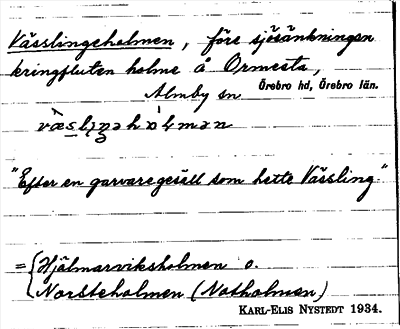 Vässlingeholmen, före sjösänkningen
kringfluten holme å Ormesta,
Almby sn Örebro hd, Örebro län.
"Efter en garvaregesäll som hette Vässling."
= Hjälmarviksholmen o.
Norsteholmen (Notholmen)
KARL-ELIS NYSTEDT 1934.